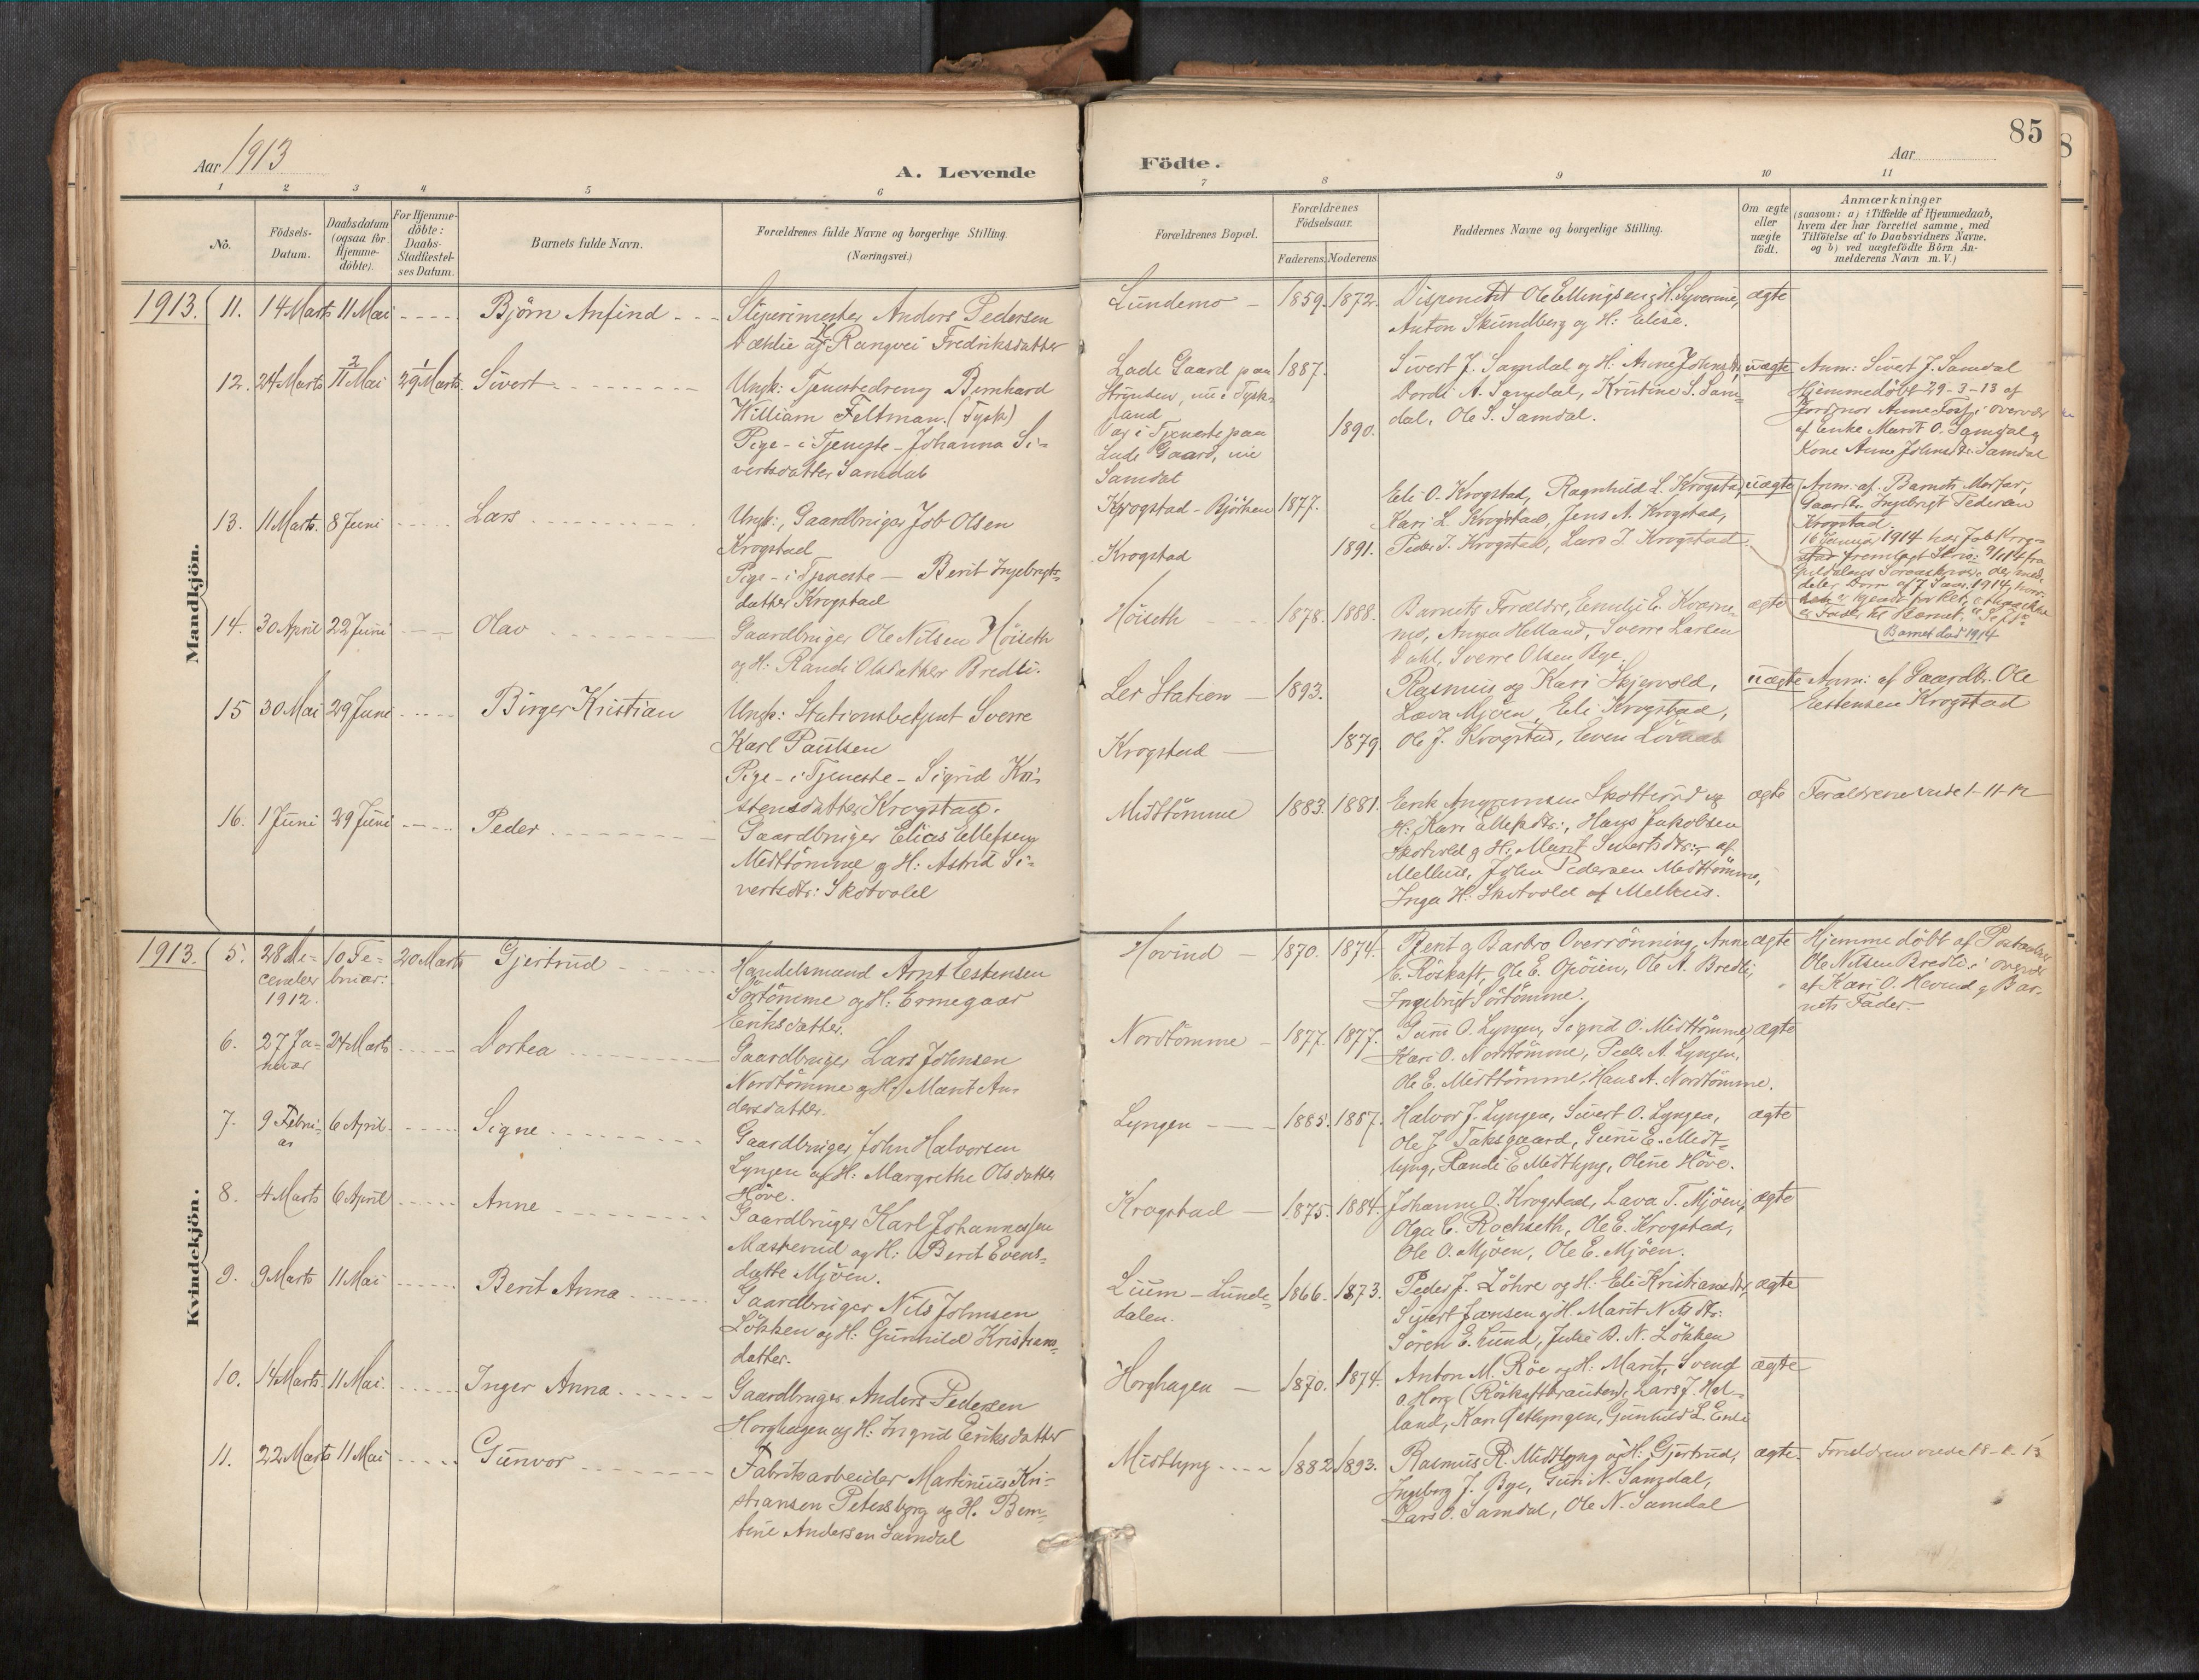 85
Aar 1913
A. Levende
Födte.
Aar
1 2 3 4 5 6 7 8 9 10 11
No.
Födsels-
Datum.
Daabsdatum
(ogsaa for
Hjemme-
döbte).
For Hjemme-
döbte:
Daabs-
Stadfæstel-
ses Datum.
Barnets fulde Navn.
Forældrenes fulde Navne og borgerlige Stilling.
(Næringsvei.)
Forældrenes Bopæl.
Forældrenes
Födselsaar.
Faderens. Moderens.
Faddernes Navne og borgerlige Stilling.
Om ægte
eller
uægte
födt.
Anmærkninger
(saasom: a) i Tilfælde af Hjemmedaab,
hvem der har forrettet samme, med
Tilföielse af to Daabsvidners Navne,
og b) ved uægtefödte Börn An-
melderens Navn m. V.)
Mandkjön.
1913. 11. 14 Marts 11 Mai
Björn Anfind
Sliperimester Anders Pedersen
Dæhlie og H: Rangvei Fredriksdatter
Lundemo 1859. 1872.
Disponent Ole Ellingsen og H. Syverine,
Anton Skundberg og H: Elise.
ægte
12. 24 Marts 2/11 Mai 1/29 Marts.
Sivert
Ungk: Tjenestedreng Bernhard
William Feltman. (Tysk)
Pige - i Tjeneste - Johanna Si-
vertsdatter Samdal
Lade Gaard paa
Strinden, nu i Tysk-
land
og i Tjeneste paa
Lade Gaard, nu
Samdal
1887.
1890.
Sivert J. Samdal og H. Anne Johnsdtr,
Dordi A. Samdal, Kristine S. Sam-
dal, Ole S. Samdal.
uægte
Anm: Sivert J. Samdal
Hjemmedöbt 29-3-13 af
Jordmor Anne Foss i overvær
af Enke Marit O. Samdal og
Kone Anne Johnsdtr. Samdal
13. 11 Marts. 8 Juni
Lars
Ungk:, Gaardbruger Job Olsen
Krogstad
Pige - i Tjeneste - Berit Ingebrigts-
datter Krogstad
Krogstad - Björken 1877.
Krogstad 1891.
Eli O. Krogstad, Ragnhild L. Krogstad,
Kari L. Krogstad, Jens A. Krogstad,
Peder I. Krogstad, Lars I Krogstad
uægte
Anm: af Barnets Morfar,
Gaardbr. Ingebrigt Pedersen
Krogstad.
16 Januar 1914 har Job Krog-
stad fremlagt Skriv. 9/1 14 fra
Guldalens Sorenskriver, der med-
deler Dom af 7 Jan. 1914, hvor-
er Fader til Barnet.
Barnet död 1914
14. 30 April 22 Juni
Olav
Gaardbruger Ole Nilsen Höiseth
og H: Randi Olsdatter Bredli.
Höiseth 1878. 1888.
Barnets Forældre, Emilie E. Kværne-
mo, Anna Helland, Sverre Larsen
Dahl, Sverre Olsen Bye.
ægte
15 30 Mai 29 Juni
Birger Kristian
Ungk: Stationsbetjent Sverre
Karl Paulsen
Pige - i Tjeneste - Sigrid Kri-
stensdatter Krogstad.
Ler Station 1893.
Krogstad 1879.
Rasmus og Kari Skjervold,
Lava Mjöen, Eli Krogstad,
Ole J. Krogstad, Even Lövaas
uægte
Anm: af Gaardbr. Ole
Estensen Krogstad
16. 1 Juni 29 Juni
Peder
Gaardbruger Elias Ellefsen
Midttömme og H: Astrid Si-
vertsdtr: Skotvold
Midttömme 1883. 1881.
Erik Angrimsen Skotterud og
H: Kari Ellefsdtr:, Hans Jakobsen
Skotvold og H: Marit Sivertsdtr:, af
Melhus, John Pedersen Midttömme,
Inga H. Skotvold af Melhus.
ægte
Forældrene viede 1-11-12
Kvindekjön.
1913. 5. 28 De-
cember
1912.
10 Fe-
bruar:
20 Marts
Gjertrud
Handelsmand Arnt Estensen
Sörtömme og H: Ermegaar
Eriksdatter.
Hovind 1870. 1874.
Berit og Barbro Overrönning, Anne
E. Röskaft, Ole E. Opöien, Ole A. Bredli,
Ingebrigt Sörtömme.
ægte
Hjemmedöbt af
Ole Nilsen Bredli i overvær
af Kari O. Hovind og Bar-
nets Fader.
6. 27 Ja-
nuar
24 Marts
Dortea
Gaardbruger Lars Johnsen
Nordtömme og H: Marit An-
dersdatter.
Nordtömme 1877. 1877.
Guru O. Lyngen, Sigrid O. Midttömme,
Kari O. Nordtömme, Peder A. Lyngen,
Ole E. Midttömme, Hans A. Nordtömme.
ægte
7. 9 Febru-
ar
6 April.
Signe
Gaardbruger John Halvorsen
Lyngen og H: Margrethe Olsdatter
Höve.
Lyngen 1885. 1887.
Halvor J. Lyngen, Sivert O. Lyngen,
Ole J. Taksgaard, Guru E. Midt-
lyng, Randi E Midtlyng, Oline Höve.
ægte
8. 4 Marts 6 April
Anne
Gaardbruger Karl Johannessen
Mæskerud og H: Berit Evens-
datte Mjöen.
Krogstad 1875. 1884.
Johanne O. Krogstad, Lava T. Mjöen,
Olga E. Rochseth, Ole E. Krogstad,
Ole O. Mjöen, Ole E. Mjöen.
ægte
9. 9 Marts 11 Mai
Berit Anna
Gaardbruger Nils Johnsen
Lökken og H: Gunhild Kristians-
datter.
Lium - Lunde-
dalen.
1866. 1873.
Peder J. Löhre og H: Eli Kristiansdtr,
Sivert Jansen og H Marit Nilsdtr:
Sören E. Lund, Julie B. N. Lökken
ægte
10. 14 Marts. 11 Mai.
Inger Anna
Gaardbruger Anders Pedersen
Horghagen og H: Ingrid Eriksdatter
Horghagen 1870. 1874.
Anton M. Röe og H: Marit, Svend
O. Horg (Röskaftbrauten), Lars J. Hel-
land, Kari Östlyngen, Gunhild L. Enli
ægte
11. 22 Marts 11 Mai
Gunvor
Fabriksarbeider Martinius Kri-
stiansen Petersborg og H. Bern-
tine Andersen Samdal
Midtlyng 1882 1893.
Rasmus R. Midtlyng og H: Gjertrud,
Ingeborg J. Bye, Guri N. Samdal,
Lars O. Samdal, Ole N. Samdal
ægte.
Forældrene viede 18-1-13